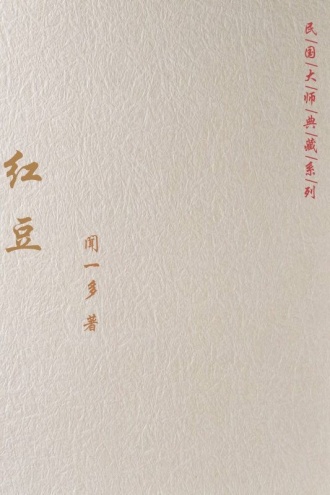 民国大师典藏系列
闻一多 著
红豆